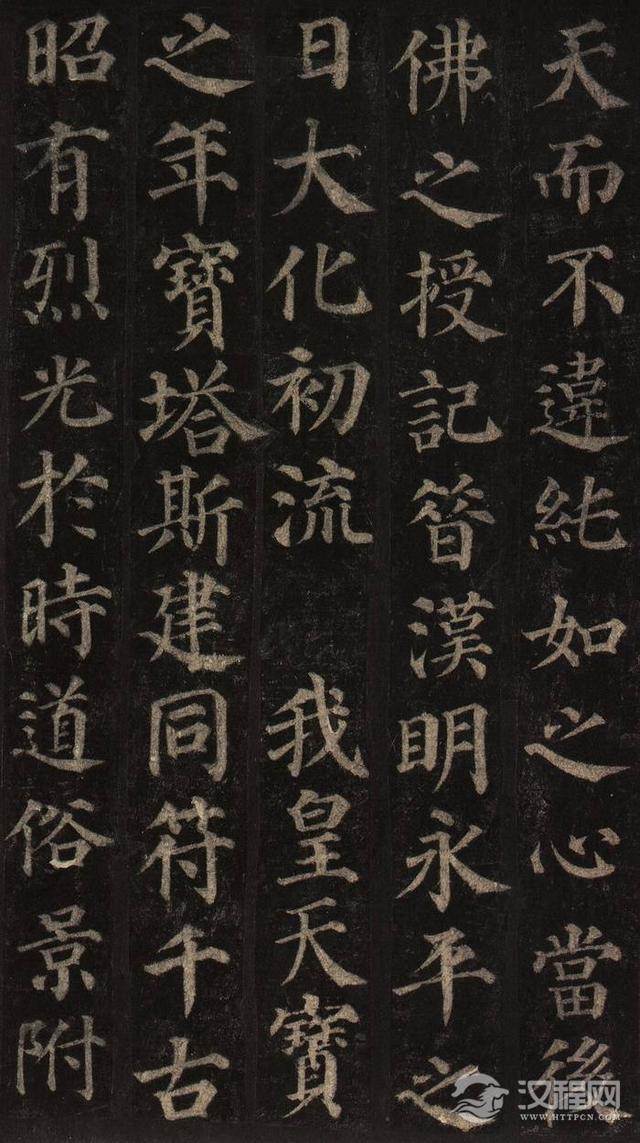 天而不違純如之心當後
佛之授記昔漢明永平之
日大化初流 我皇天寶
之年寶塔斯建同符千古
昭有烈光於時道俗景附
汉程网
WWW.HTTPCN.COM